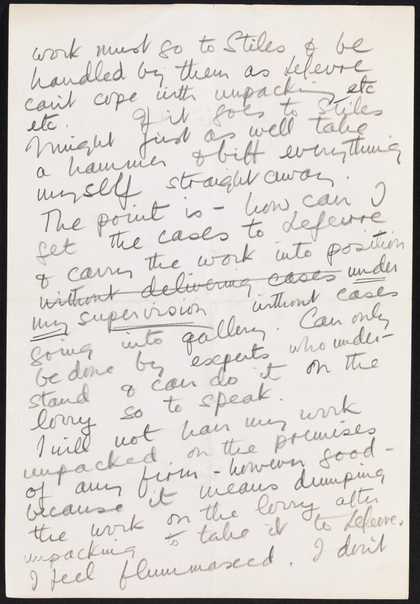 work must go to Stiles & be
handled by them as Lefevre
can't cope with unpacking etc
etc. If it goes to Stiles
I might just as well take
a hammer & biff everything
myself straight away.
The point is – how can I
get the cases to Lefevre
& carry the work into position
without delivering cases under
my supervision without cases
going into gallery. Can only
be done by experts who under-
stand & can do it on the
lorry so to speak.
I will not have my work
unpacked on the premises
of any firm – however good –
because it means dumping
the work on the lorry after
unpacking to take it to Lefevre.
I feel flummased. I don't